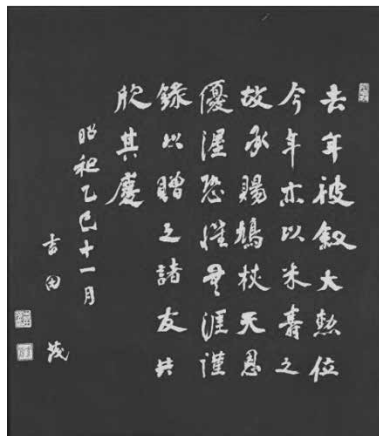 去年被敘大勲位
今年亦以米壽之
故承賜鳩杖天恩
優渥恐惶無涯謹
錄以贈之諸友共
欣其慶
昭和乙巳十一月
吉田茂